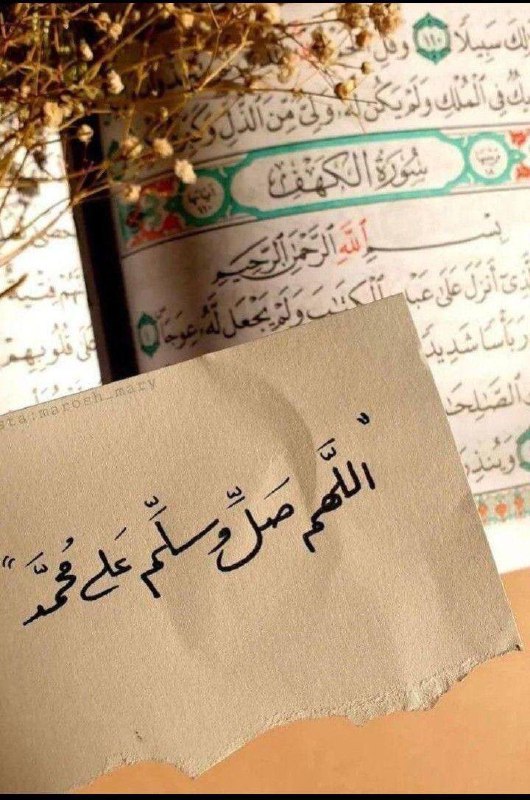 سَبِيلًا ١١٠ وَقُلِ
فِي ٱلْمُلْكِ وَلَمْ يَكُن لَّهُۥ وَلِيٌّ مِّنَ ٱلذُّلِّ
سُورَةُ الكَهْفِ
بِسْمِ ٱللَّهِ ٱلرَّحْمَٰنِ ٱلرَّحِيمِ
أَنزَلَ عَلَىٰ عَبْدِهِ ٱلْكِتَٰبَ وَلَمْ يَجْعَل لَّهُۥ عِوَجَا ١
بَأْسًا شَدِيدًا
فِتْيَةٌ
عَلَىٰ قُلُوبِهِمْ
sta:marosh_mary
"اللَّهم صَلِّ وسلِّم عَلى مُحمَّد"